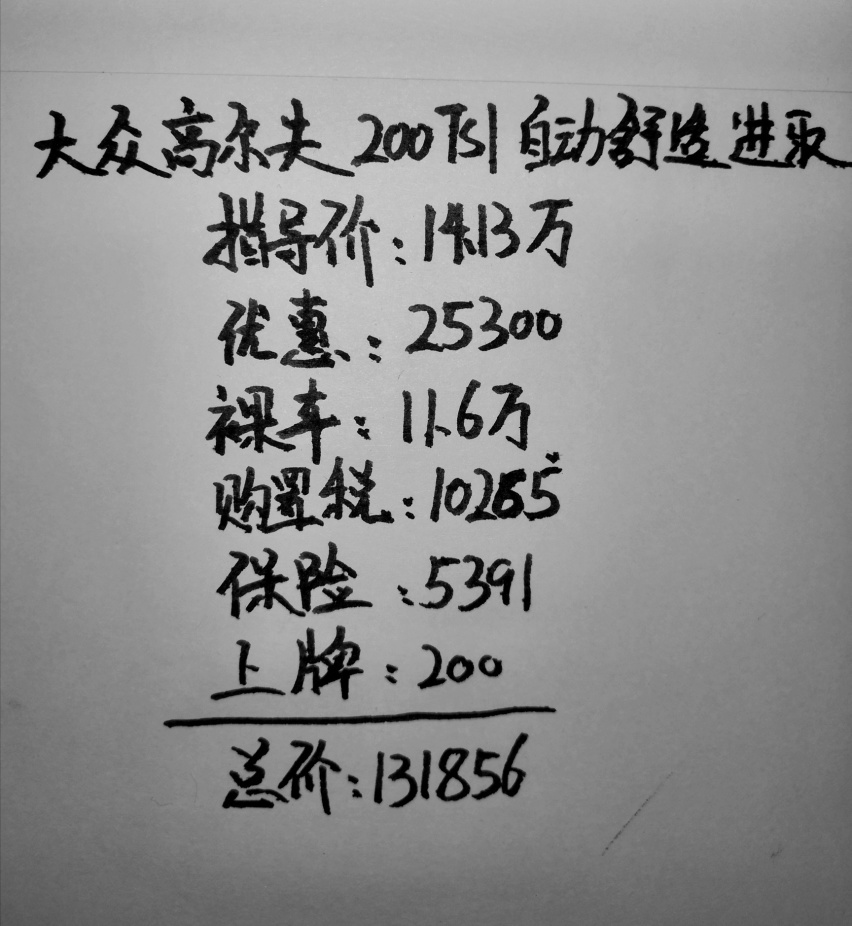 大众高尔夫 200TSI 自动舒适进取
指导价:14.13万
优惠:25300
裸车:11.6万
购置税:10265
保险:5391
上牌:200
总价:131856